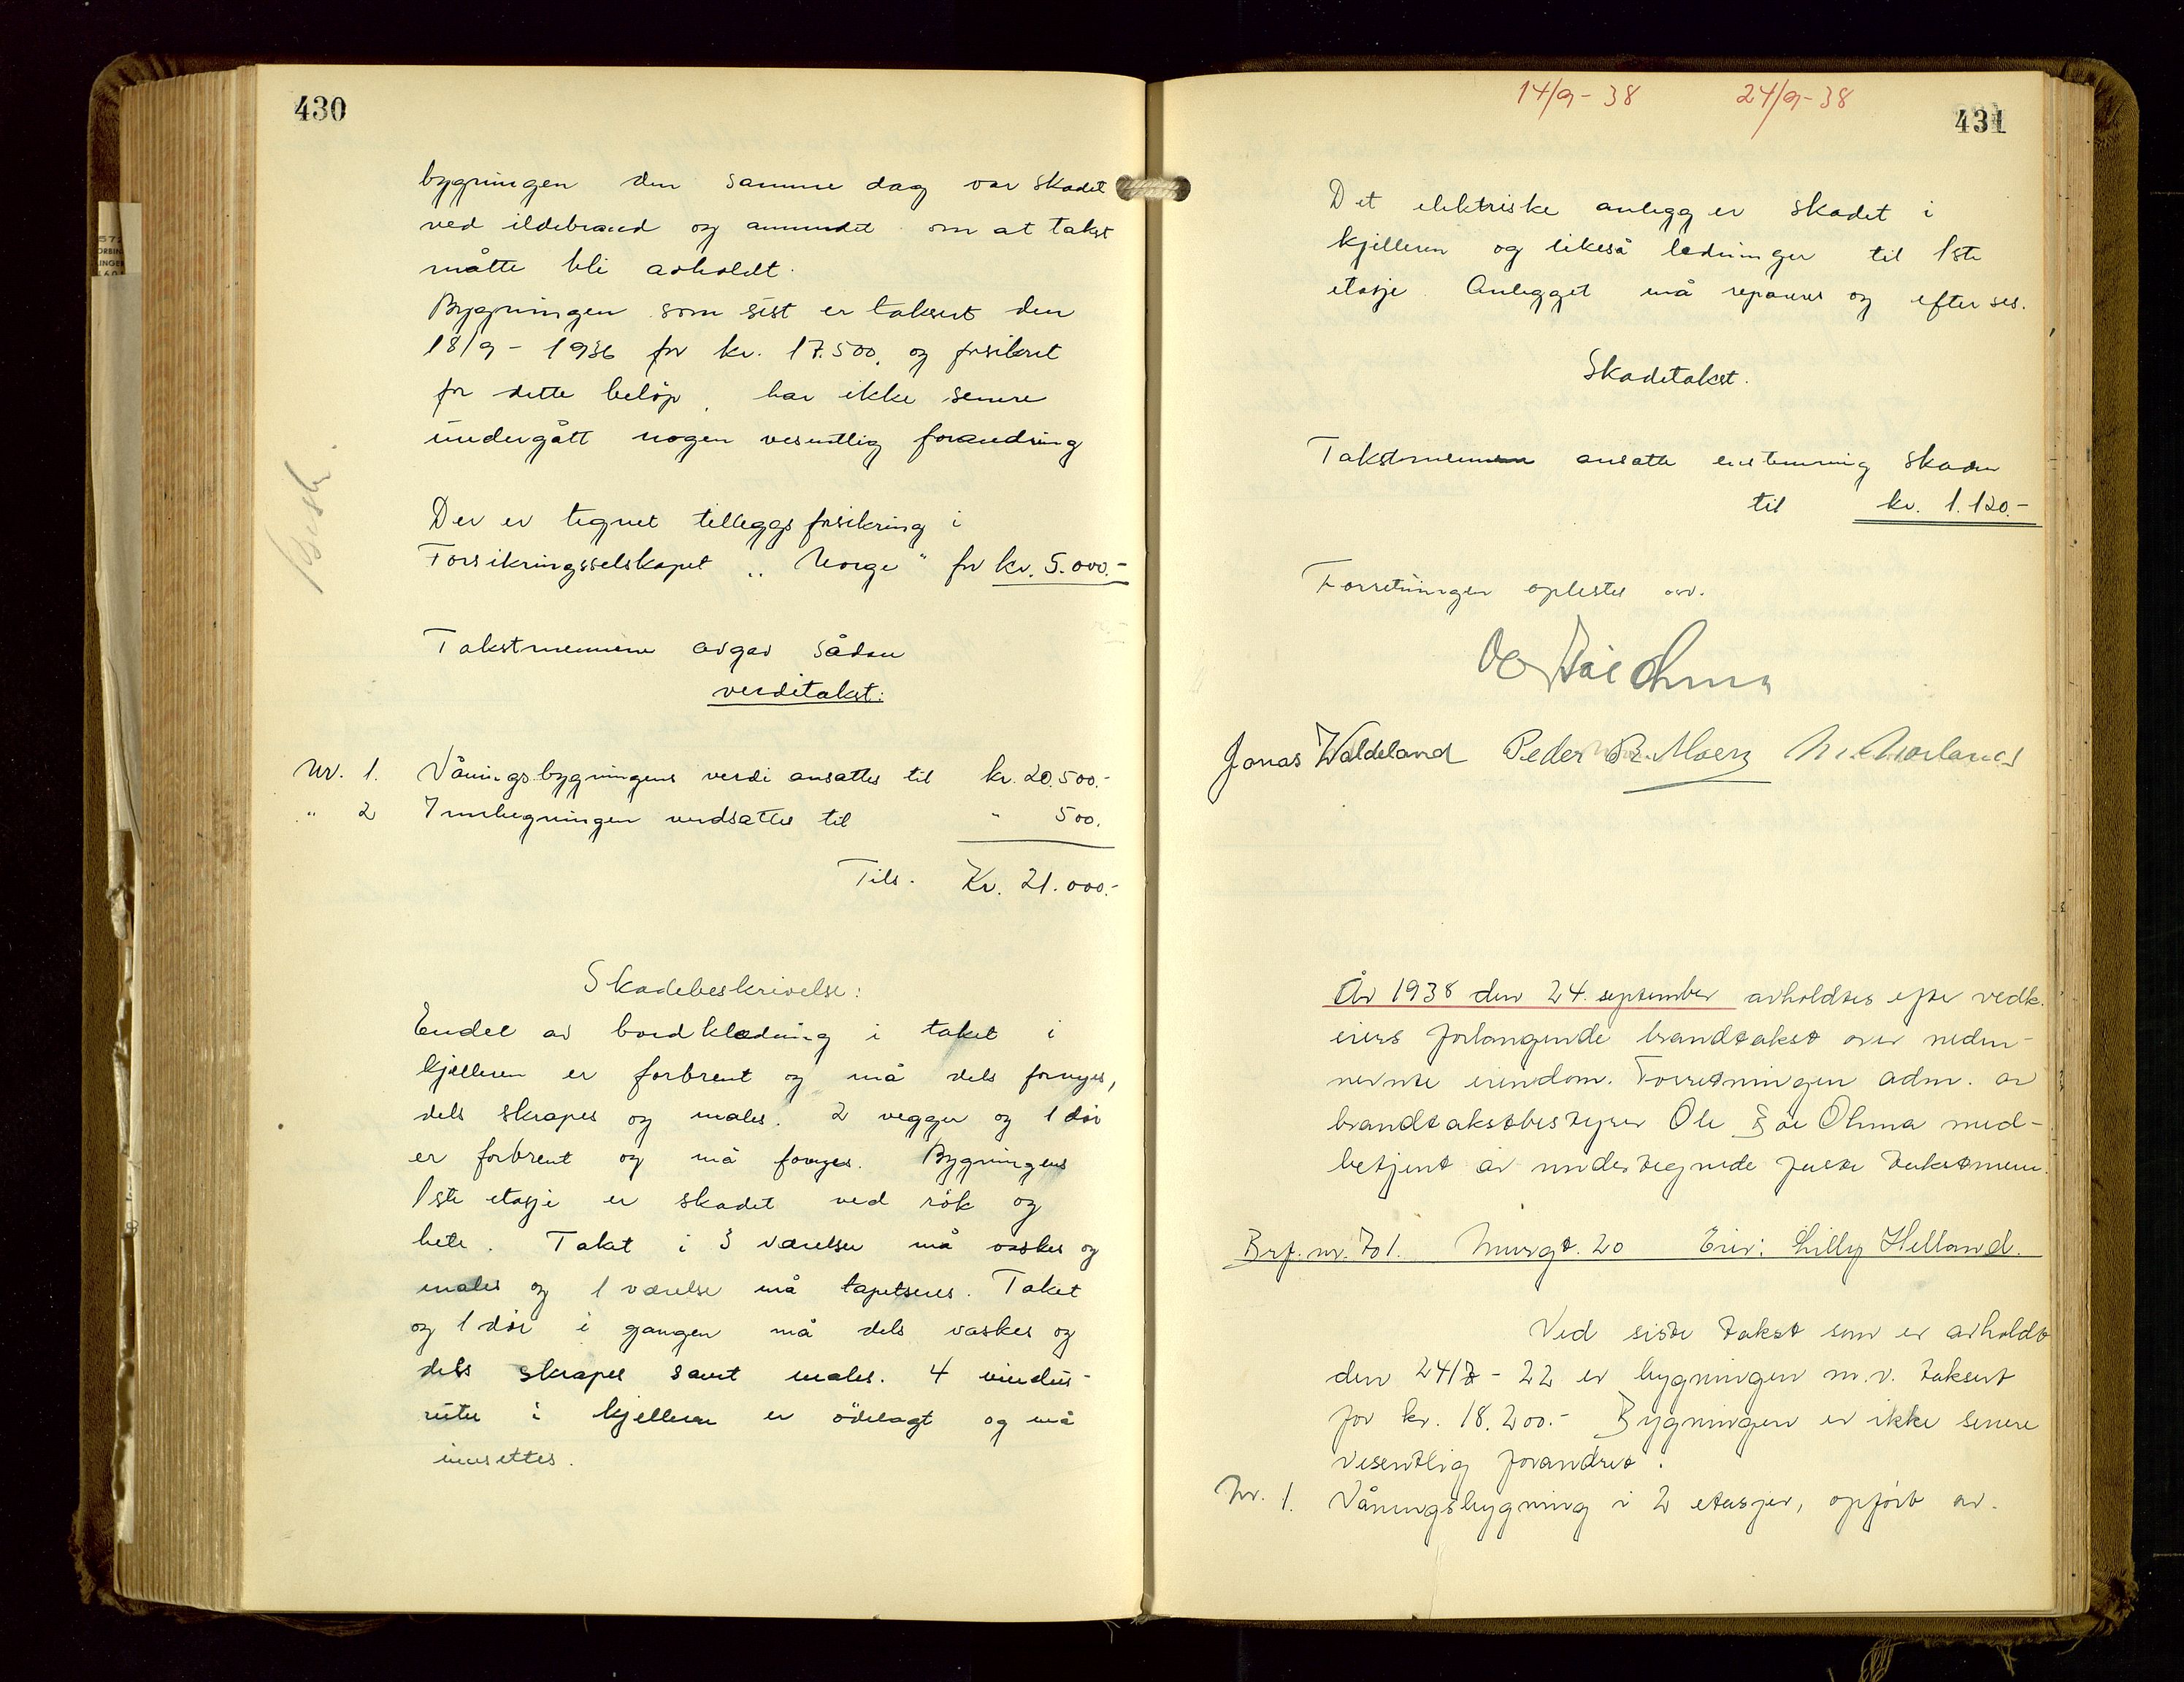 430
bygningen den samme dag var skadet
ved ildebrand og anmodet om at takst
måtte bli avholdt.
Bygningen som sist er taksert den
18/9 - 1936 for kr. 17.500, og forsikret
for dette beløp, har ikke senere
undergått nogen vesentlig forandring
Der er tegnet tilleggsforsikring i
Forsikringsselskapet „Norge" for kr. 5.000.-
Takstmennene avgav sådan
verditakst:
Nr. 1. Våningsbygningens verdi ansattes til kr. 20.500.-
" 2 Innhegningen verdsattes til " 500.
Tils. Kr. 21.000.-
Skadebeskrivelse:
Endel av bordklædning i taket i
kjelleren er forbrent og må dels fornyes,
dels skrapes og males. 2 vegger og 1 dør
er forbrent og må fornyes. Bygningens
1ste etasje er skadet ved røk og
hete. Taket i 3 værelser må vaskes og
males og 1 værelse må tapetseres. Taket
og 1 dør i gangen må dels vaskes og
dels skrapes samt males. 4 vindus-
ruter i kjelleren er ødelagt og må
innsettes.
14/9 - 38 24/9 - 38
431
Det elektriske anlegg er skadet i
kjelleren og likeså ledninger til 1ste
etasje Anlegget må repareres og efterses.
Skadetakst.
Takstmennene ansatte enstemmig skaden
til kr. 1.120.-
Forretningen oplestes
Jonas Waldeland Peder B. Moen
År 1938 den 24. september avholdtes efter vedk.
eiers forlangende brandtakst over neden-
nevnte eiendom. Forretningen adm. av
brandtakstbestyrer Ole Ohma med-
betjent av undertegnede faste takstmenn.
Brf. nr. 701. Murgt. 20 Eier: Lilly Helland.
Ved siste takst som er avholdt
den 24/7 - 22 er bygningen m.v. taksert
for kr. 18.200.- Bygningen er ikke senere
vesentlig forandret.
Nr. 1. Våningsbygning i 2 etasjer, opført av